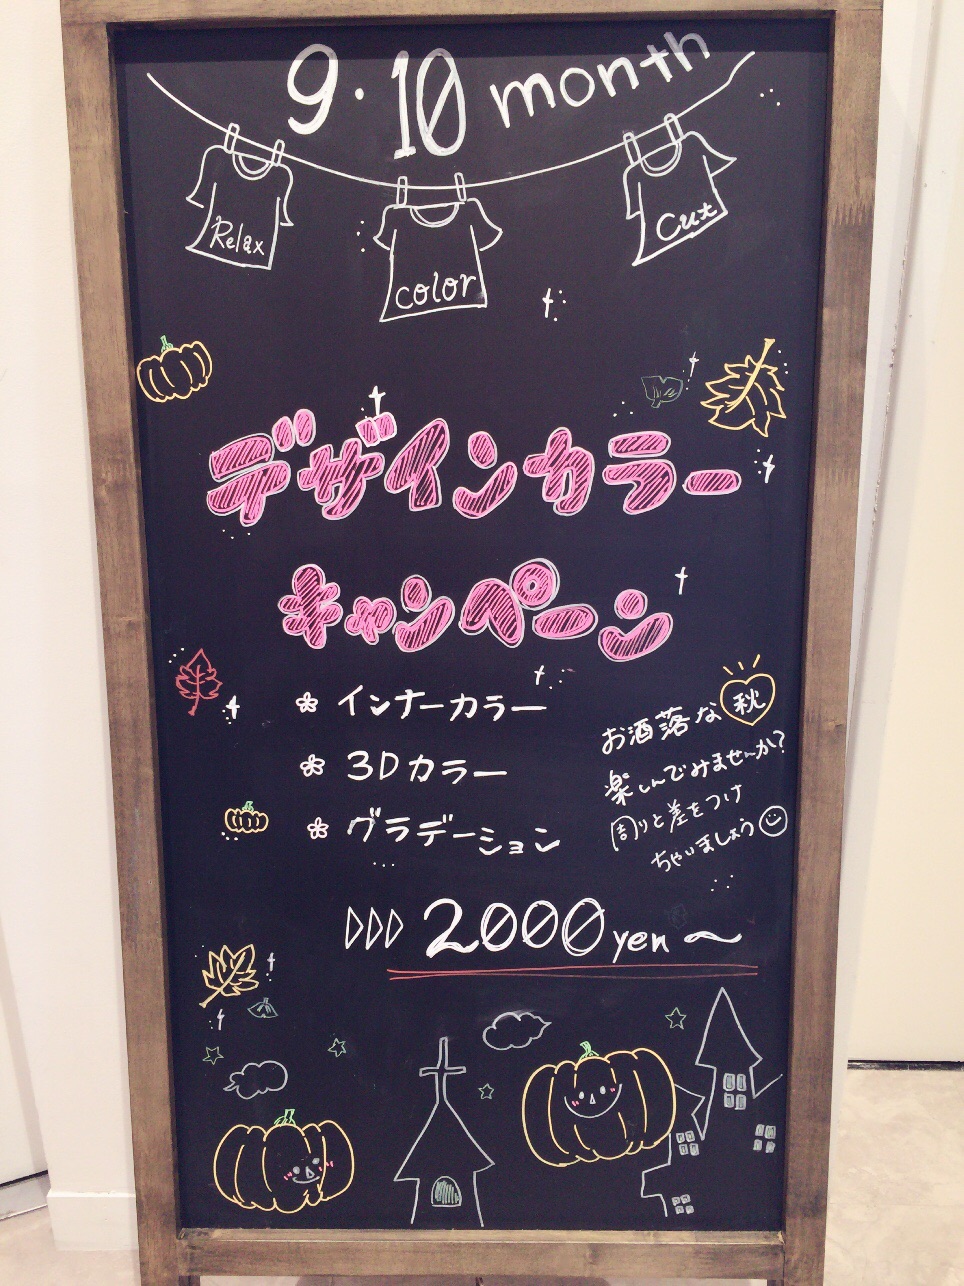 9・10 month
Relax
color
Cut
デザインカラー
キャンペーン
インナーカラー
3Dカラー
グラデーション
お洒落な秋
楽しんでみませんか?
周りと差をつけ
ちゃいましょう
2000yen〜